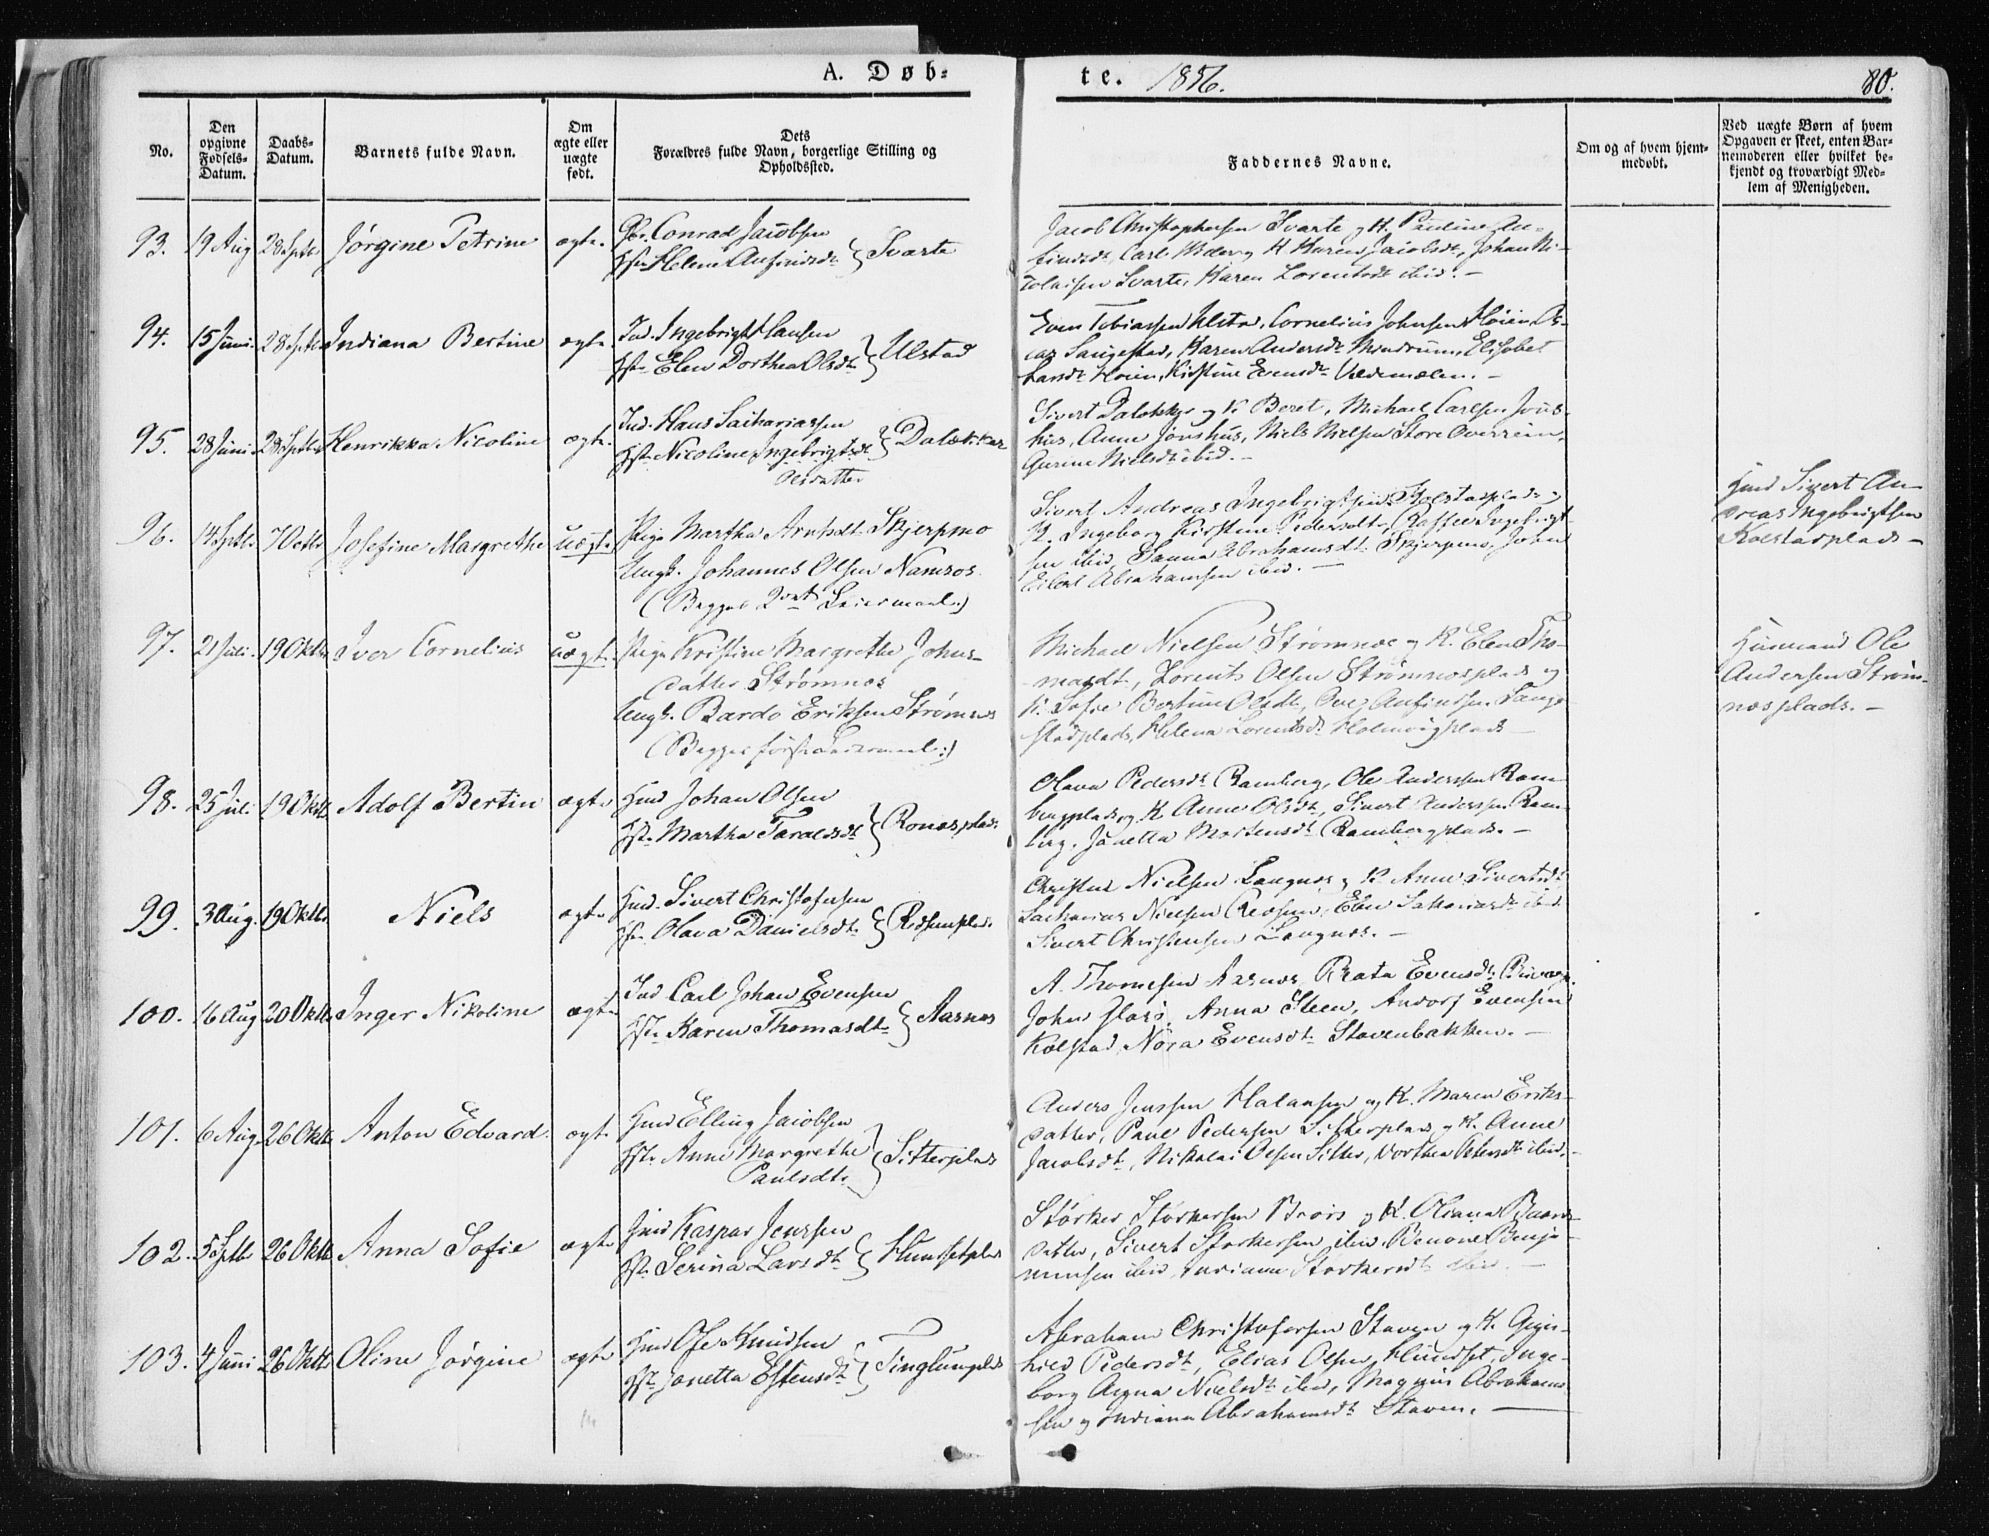 A. Døb-
te. 1856. 80.
No.
Den opgivne Fødsels-Datum.
Daabs-Datum.
Barnets fulde Navn.
Om ægte eller uægte født.
Dets
Forældres fulde Navn, borgerlige Stilling og
Opholdssted.
Faddernes Navne.
Om og af hvem hjem-
medøbt.
Ved uægte Børn af hvem
Opgaven er skeet, enten Bar-
nemoderen eller hvilket be-
kjendt og troværdigt Med-
lem af Menigheden.
93. 19 Aug 28 Septb Jørgine Petrine ægte
Conrad Jacobsen
Helene Anfindsdt } Svarte
Jacob Christophersen Svarte og K. Pauline An-
findsdt, Carl og K Karen Jacobsdt, Johan Ni-
kolaisen Svarte, Karen Lorentsdt ibid. -
94. 15 Juni 28 Septb Indiana Bertine ægte
Ind. Ingebrigt Hansen
Hst. Elen Dorthea Olsdt } Ulstad
Even Tobiassen Ulstad, Cornelius Johnsen Høien,
Saugestad, Karen Andersdt Mindrum, Elisabet
Larsdt Høien, Kirstine Evensdt -
95. 28 Juni 28 Septb Henrikka Nicoline ægte
Ind. Hans Sachariassen
Hst. Nicoline Ingebrigtsdt } Dalækker
Olsdatter
Sivert Dalækker og K Beret, Michael Carlsen Jons-
hus, Anne Jonshus, Niels Nielsen Store Overrein,
Gurine Nielsdt ibid. -
96. 14 Septb 7 Octb Josefine Margrethe uægte
Pige Martha Arntsdt Skjerpmo
Ungk. Johannes Olsen Namsos.
(Begges 2det Leiermaal.)
Sivert Andreas Ingebrigtsen Kolstadplads og
K. Ingeborg Kirstine Pedersdt, Ingebrigt-
sen ibid, Sanna Abrahamsdt Skjerpmo, John
Eilert Abrahamsen ibid. -
Hmd Sivert An-
dreas Ingebrigtsen
Kolstadplads -
97. 21 Juli 19 Oktb Iver Cornelius uægt.
Pige Kristine Margrethe Johns-
datter Strømnes
Ungk. Bardo Eriksen Strømnes
(Begges første Leiermaal.)
Michael Nielsen Strømnes og K. Elen Tho-
masdt, Lorents Olsen Strømnesplads og
K. Sofie Bertine Olsdt, Ove Anfindsen Sauge-
stadplads, Helena Lorentsdt Holmvigplads
Husmand Ole
Andersen Strøm-
nesplads. -
98. 25 Juli 19 Oktb Adolf Bertin ægte
Hmd Johan Olsen
Hst. Martha Taraldsdt } Ronæsplads
Olava Pedersdt Ramberg, Ole Anderssen Ram-
bergplads og K Anne Olsdt, Sivert Anderssen Ram-
berg, Janetta Mortensdt Rambergplads. -
99. 3 Aug. 19 Oktb Niels ægte
Hmd. Sivert Christofersen
Olava Danielsdt }
Nielsen Langnes og K Anne Sivertsdt
Sacharias Nielsen, Elen Sakariasdt ibid
Sivert Christensen Langnes. -
100. 16 Aug 20 Oktb Inger Nikoline ægte
Ind Carl Johan Evensen
Hst. Karen Thomasdt } Aasnes
A. Thomesen Aasnes, Beata Evensdt
John, Anna Steen, Andors Evensen
Kolstad, Nora Evensdt Stavenbakken. -
101. 6 Aug. 26 Oktb Anton Edvard ægt
Hmd Elling Jacobsen
Hst. Anne Margrethe
Paulsdt } Sitterplads
Anders Jenssen Halansen og K. Maren Eriks-
datter, Paul Pedersen Sitterplads og K. Anne
Jacobsdt, Nikolai Olsen Sitter, Dorthea Petersdt ibid. -
102. 5 Septb 26 Oktb Anna Sofie ægte
Hmd Kaspar Jenssen
Hst. Serina Larsdt } Hundsetplads
Størker Størkersen og K. Oliana Baards-
datter, Sivert Størkersen ibid, Benone Benja-
minsen ibid, Indiana Størkersdt ibid. -
103. 4 Juni 26 Oktb Oline Jørgine ægte
Hmd Ole Knudsen
Hst. Janetta Estensdt } Finglumplads
Abraham Christofersen Staven og K. Gun-
hild Pedersdt, Elias Olsen Hundset, Inge-
borg Anna Nielsdt ibid, Magnus Abraham-
sen og Indiana Abrahamsdt Staven. -